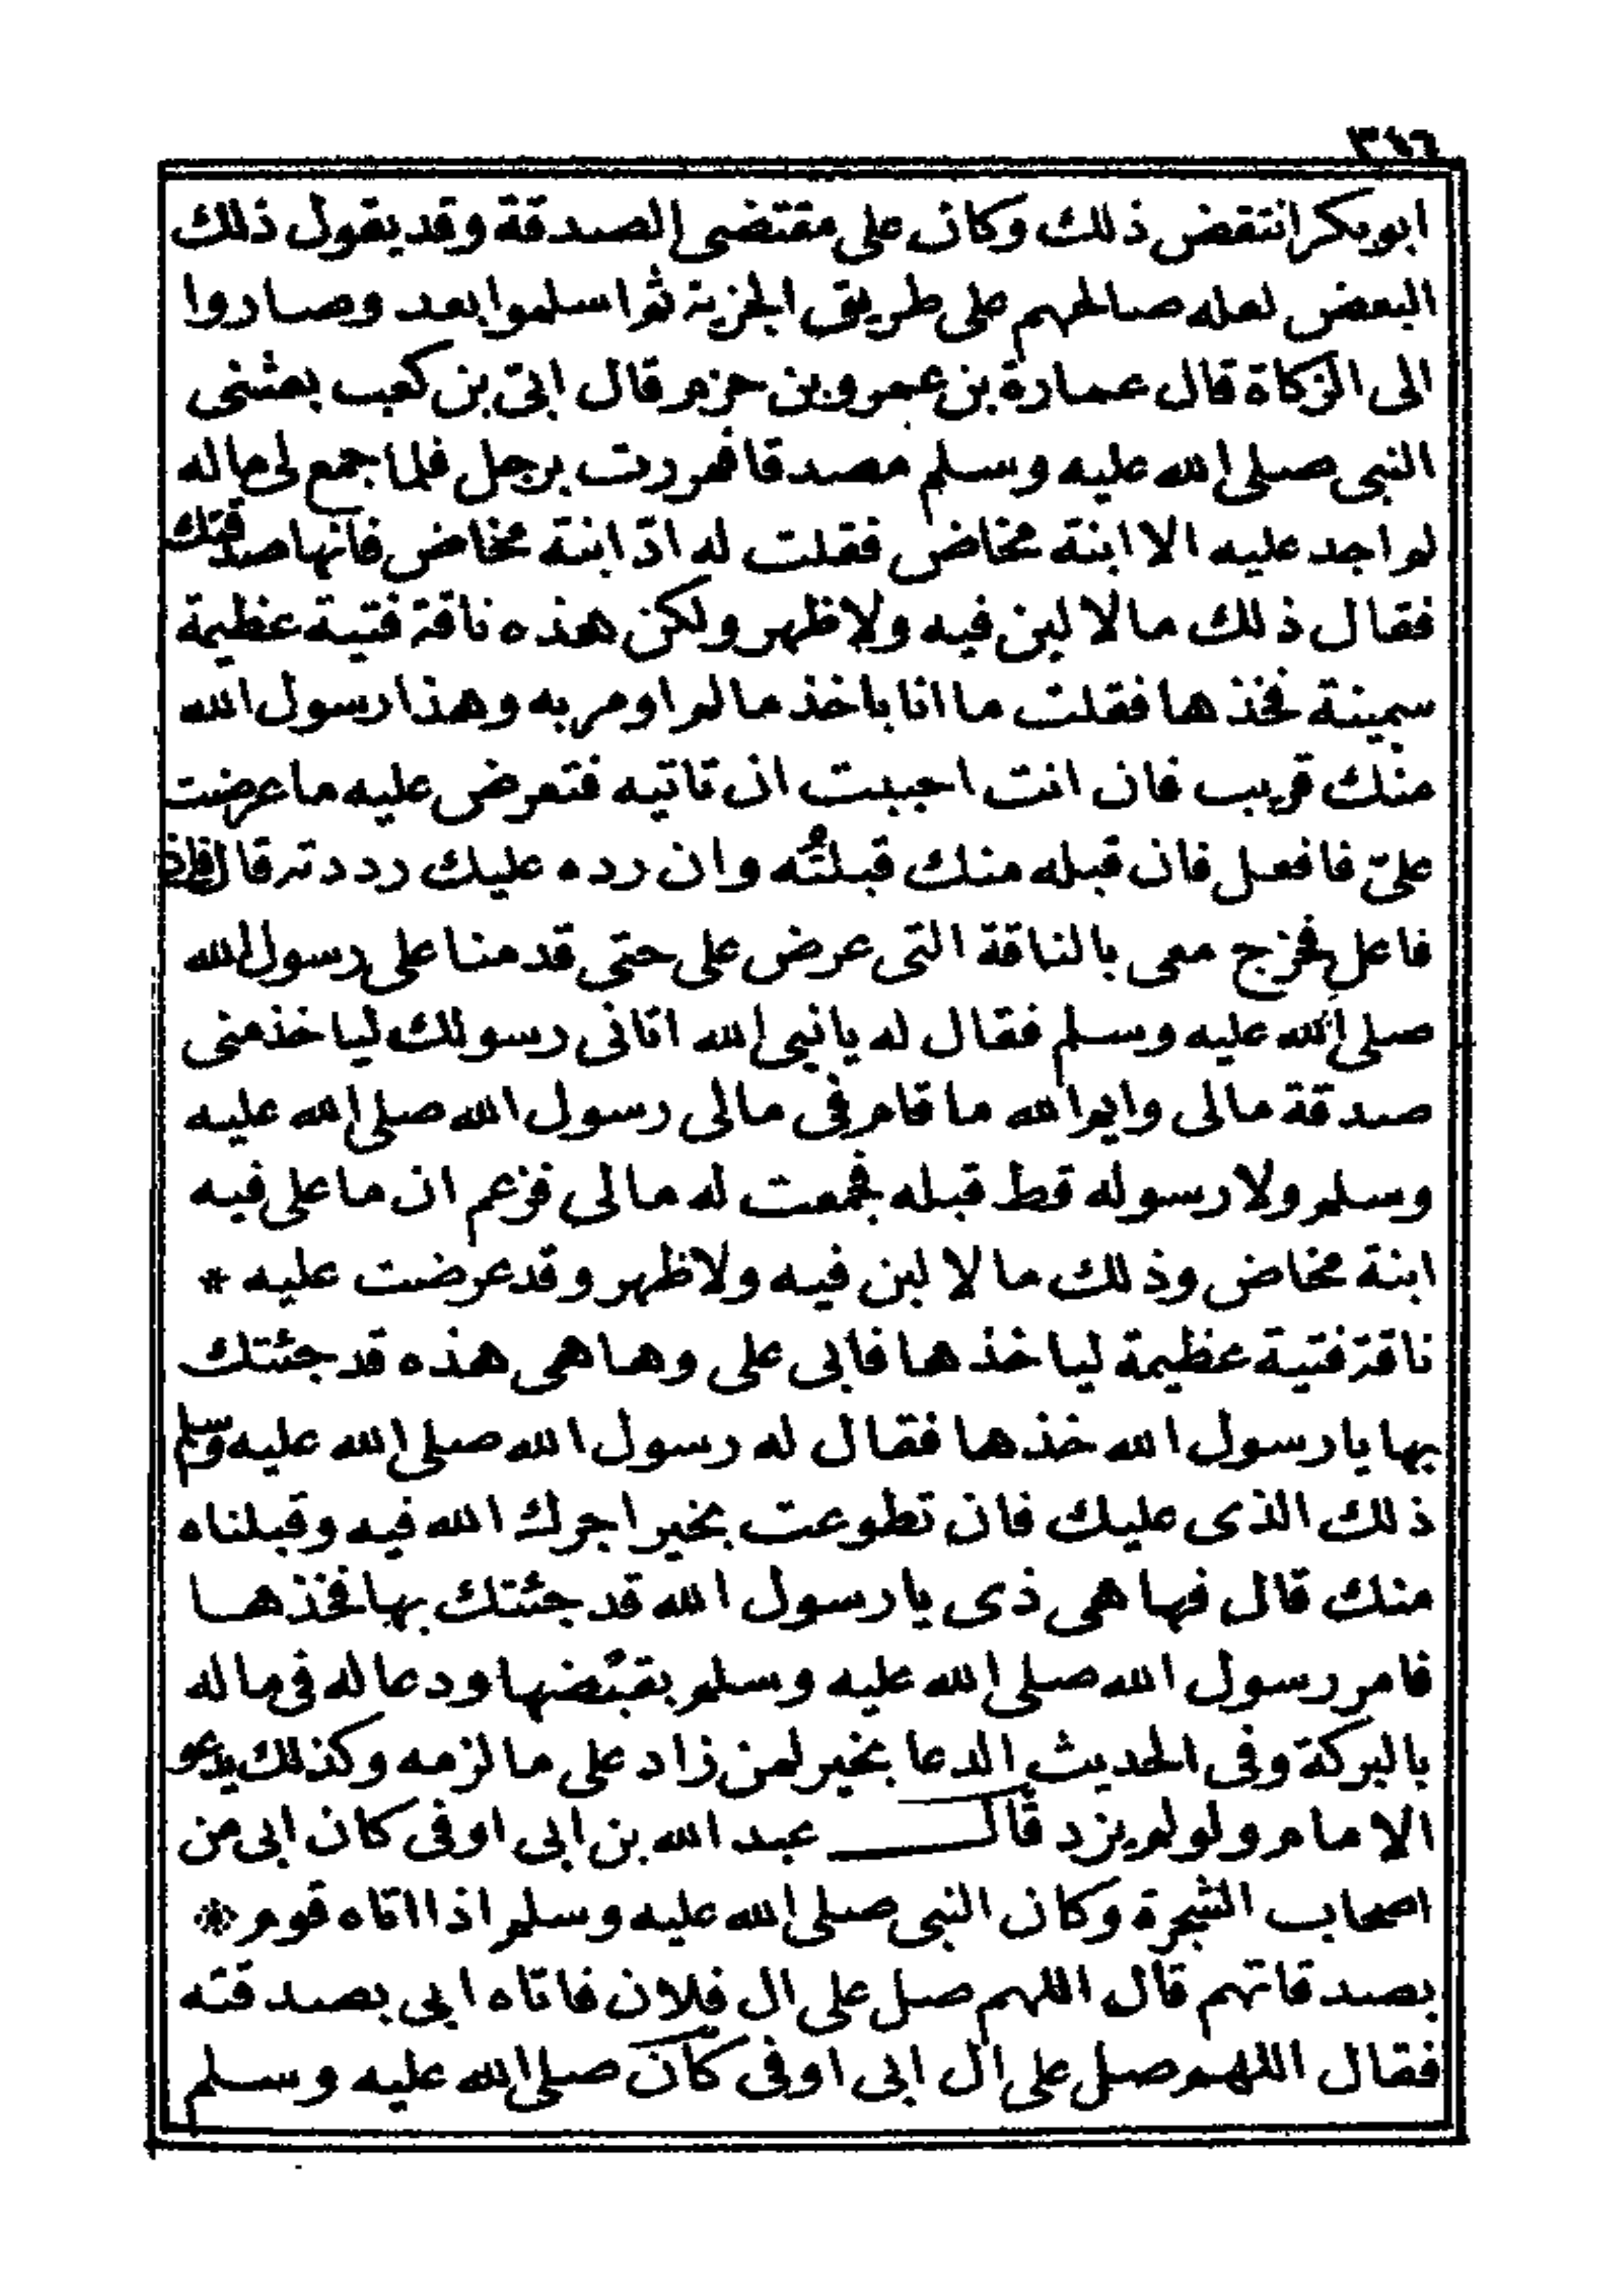 ٣٤٦
ابو بكر انتقض ذلك وكان على مقتضى الصدقة وقد يقول ذلك
البعض لعله صالحهم على طريق الجزية ثم اسلموا بعد وصاروا
الى الزكاة قال عمارة بن عمرو بن حزم قال ابىّ بن كعب بعثنى
النبى صلى الله عليه وسلم مصدقا فمررت برجل فلما جمع لى ماله
لم اجد عليه الا ابنة مخاض فقلت له ادّ ابنة مخاض فانها صدقتك
فقال ذلك ما لا لبن فيه ولا ظهر ولكن هذه ناقة فتية عظيمة
سمينة فخذها فقلت ما انا باخذ ما لم اومر به وهذا رسول الله
منك قريب فان انت احببت ان تاتيه فتعرض عليه ما عرضت
علىّ فافعل فان قبله منك قبلتُه وان رده عليك رددته قال فانى
فاعل فخرج معى بالناقة التى عرض على حتى قدمنا على رسول الله
صلى الله عليه وسلم فقال له يا نبى الله اتانى رسولك لياخذ منى
صدقة مالى وايم الله ما قام فى مالى رسول الله صلى الله عليه
وسلم ولا رسوله قط قبله فجمعت له مالى فزعم ان ما على فيه
ابنة مخاض وذلك ما لا لبن فيه ولا ظهر وقد عرضت عليه *
ناقة فتية عظيمة لياخذها فابى على وها هى هذه قد جئتك
بها يا رسول الله خذها فقال له رسول الله صلى الله عليه وسلم
ذلك الذى عليك فان تطوعت بخير اجرك الله فيه وقبلناه
منك قال فها هى ذى يا رسول الله قد جئتك بها فخذها
فامر رسول الله صلى الله عليه وسلم بقبضها ودعا له فى ماله
بالبركة وفى الحديث الدعا بخير لمن زاد على ما لزمه وكذلك يدعو
الامام ولو لم يزد قال عبد الله بن ابى اوفى كان ابى من
اصحاب الشجرة وكان النبى صلى الله عليه وسلم اذا اتاه قوم *
بصدقاتهم قال اللهم صل على ال فلان فاتاه ابى بصدقته
فقال اللهم صل على ال ابى اوفى كان صلى الله عليه وسلم